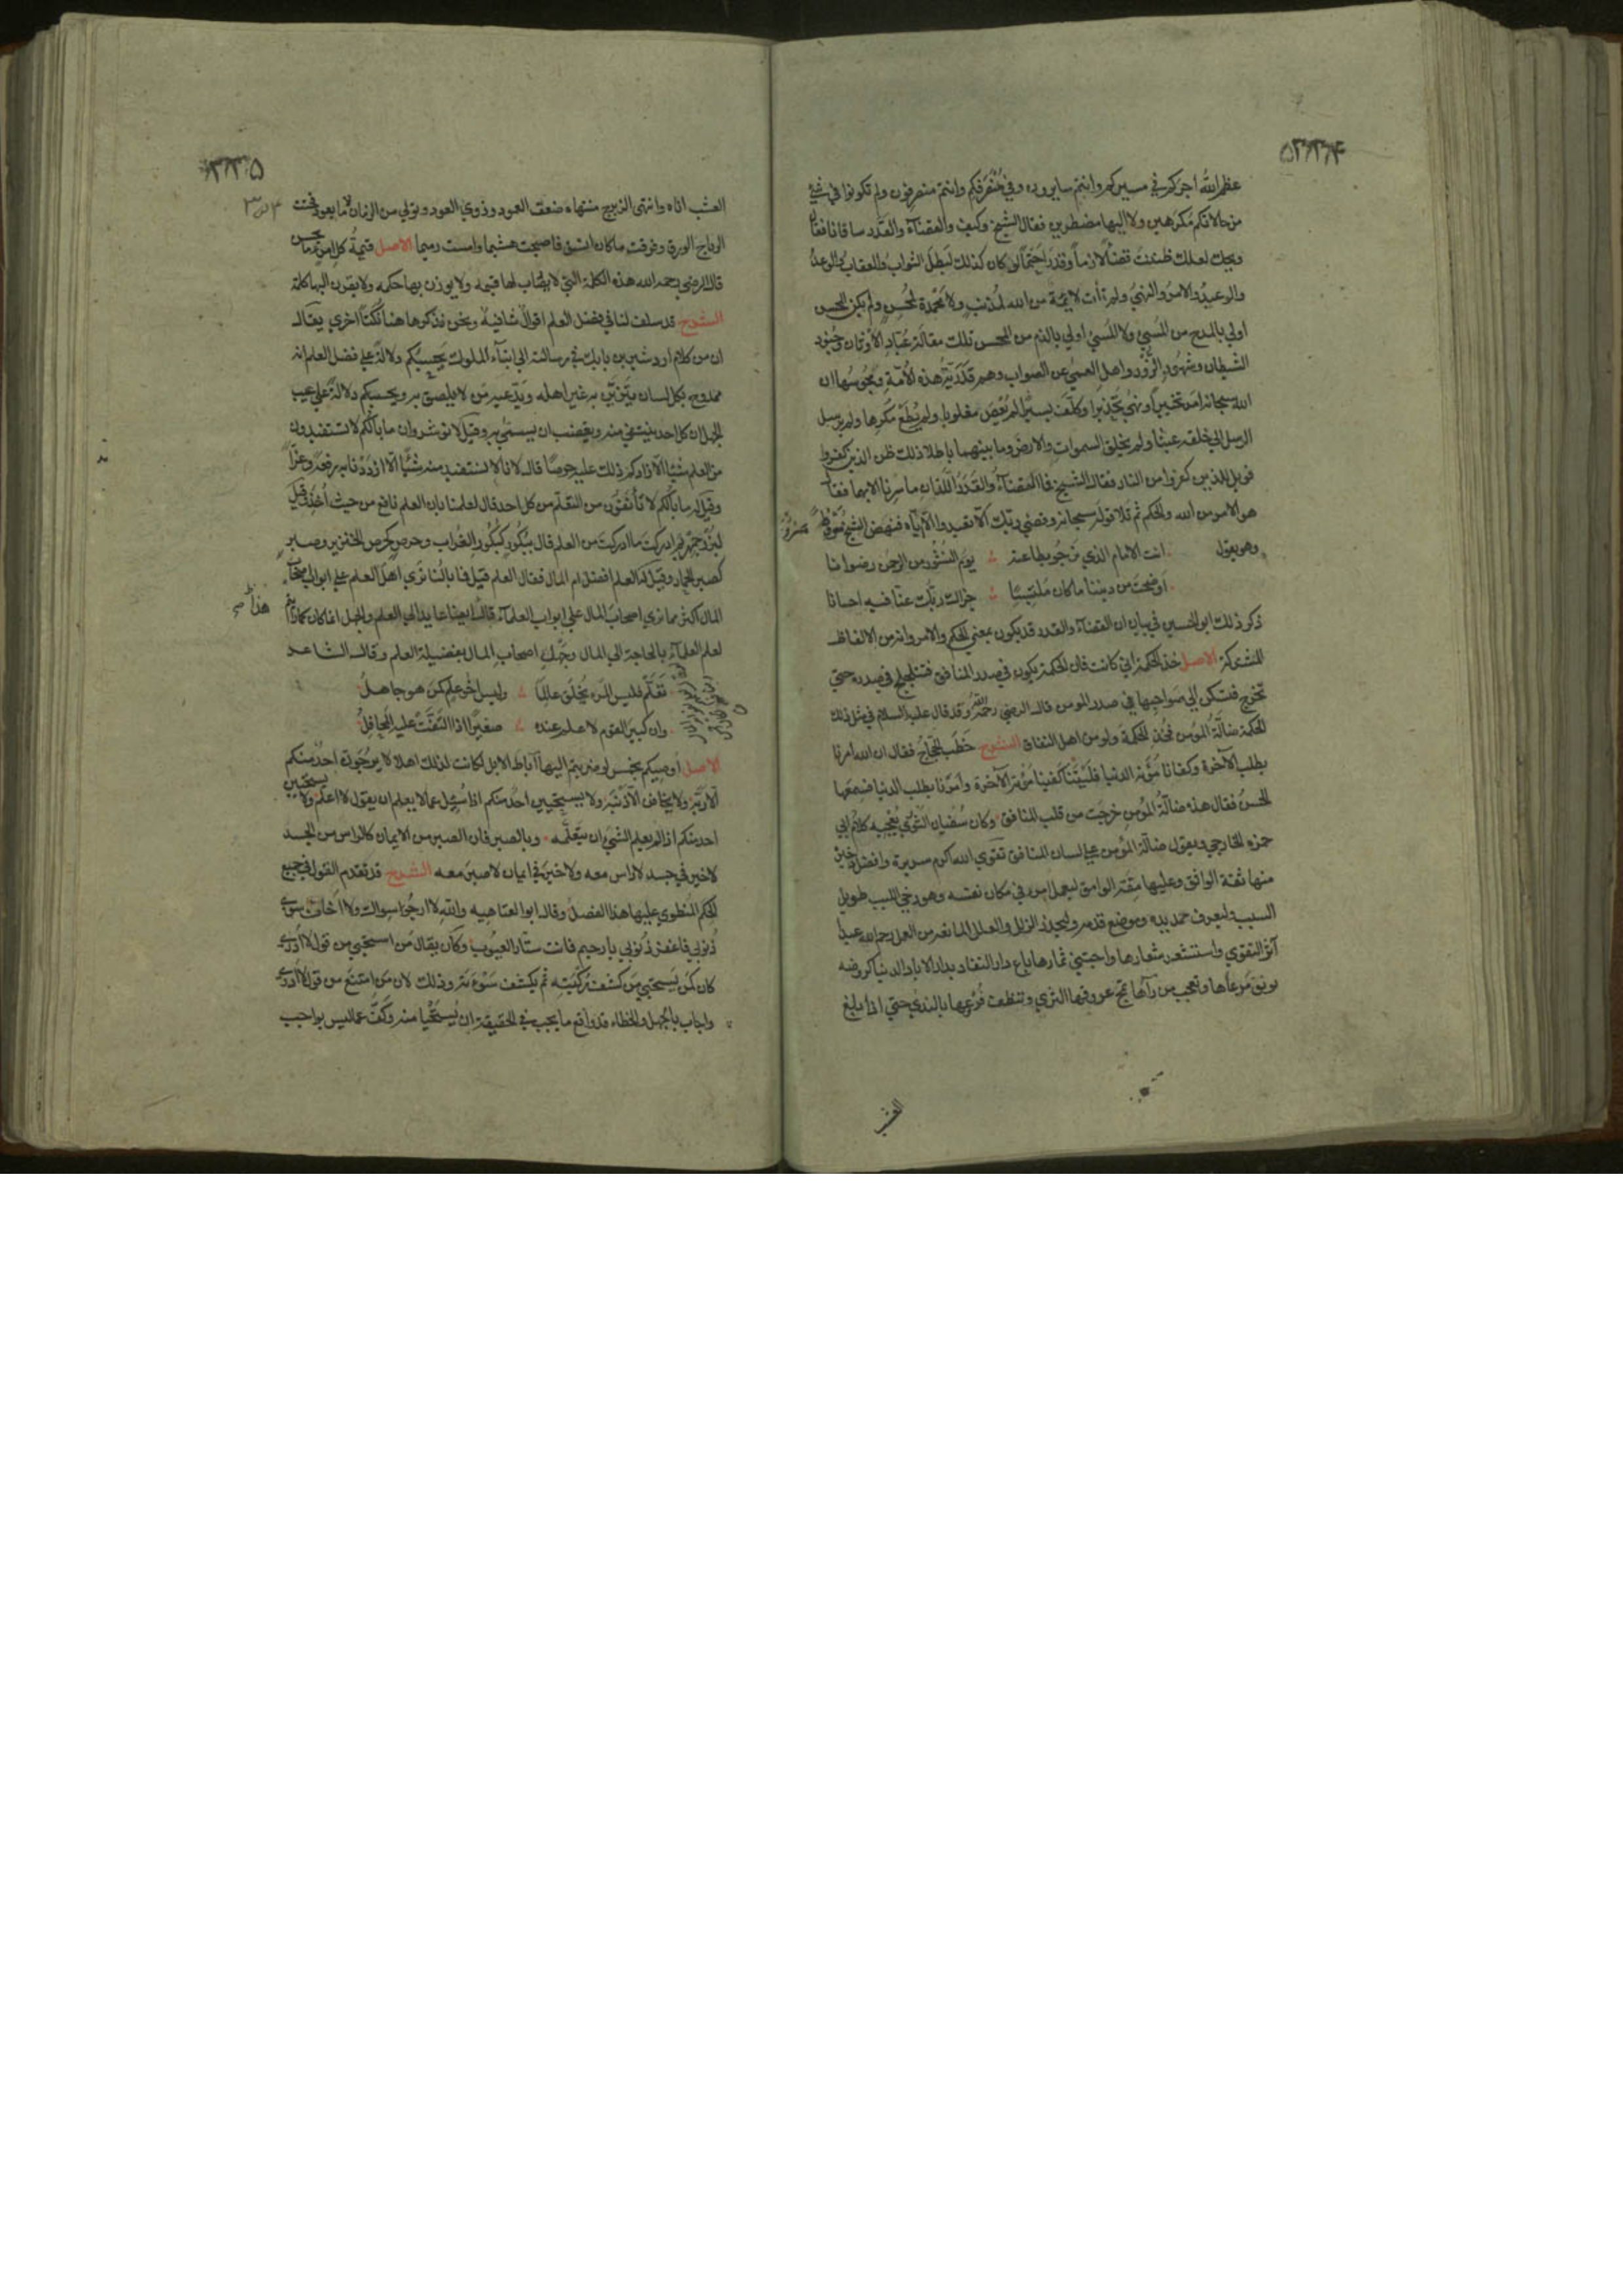 ۵۳۳۴
عظم الله اجركم في مسيركم وانتم سايرون وفي منصرفكم وانتم منصرفون ولم تكونوا في شئ
من حالاتكم مكرهين ولا اليها مضطرين فقال الشيخ وكيف والقضآء والقدر ساقانا فقال
ويحك لعلك ظننت قضآء لازماً وقدراً حتماً لو كان كذلك لبطل الثواب والعقاب والوعد
والوعيد والامر والنهي ولم تأت لائمة من الله لمذنب ولا محمدة لمحسن ولم يكن المحسن
اولي بالمدح من المسئ ولا المسئ اولي بالذم من المحسن تلك مقالة عباد الاوثان وجنود
الشيطان وشهود الزور واهل العمي عن الصواب وهم قدرية هذه الامة ومجوسها ان
الله سبحانه امر تخييراً ونهي تحذيرا وكلف يسيراً لم يعص مغلوبا ولم يطع مكرها ولم يرسل
الرسل الي خلقه عبثا ولم يخلق السموات والارض وما بينهما باطلا ذلك ظن الذين كفروا
فويل للذين كفروا من النار فقال الشيخ فما القضآء والقدر اللذان ما سرنا الا بهما فقال
هو الامر من الله والحكم ثم تلا قوله سبحانه وقضي ربك الا تعبدوا الا اياه فنهض الشيخ مسروراً
وهو يقول انت الامام الذي نرجو بطاعته يوم النشور من الرحمن رضوانا
اوضحت من ديننا ما كان ملتبسًا جزاك ربك عنا فيه احسانا
ذكر ذلك ابو الحسين في بيان ان القضآء والقدر قد يكون بمعني الحكم والامر وانه من الالفاظ
المشتركة الاصل خذ الحكمة اني كانت فان الحكمة تكون في صدر المنافق فتتلجلج في صدره حتي
تخرج فتسكن الي صواحبها في صدر المومن قال الرضي رحمه الله وقد قال عليه السلام في مثل ذلك
الحكمة ضالة المؤمن فخذ الحكمة ولو من اهل النفاق الشرح خطب الحجاج فقال ان الله امرنا
بطلب الآخرة وكفانا مؤنة الدنيا فليتنا كفينا مؤنة الآخرة وامرنا بطلب الدنيا فسمعها
الحسن فقال هذه ضالة المؤمن خرجت من قلب المنافق وكان سفيان الثوري يعجبه كلام ابي
حمزه الخارجي ويقول ضالة المؤمن علي لسان المنافق تقوي الله اكرم سريرة وافضل ذخيرة
منها ثقة الواثق وعليها مقة الوامق ليعمل امرء في مكان نفسه وهو رخي اللبب طويل
السبب وليعرف ممد يده وموضع قدمه وليحذر الزلل والعلل المانعة من العمل رحم الله عبدا
آثر التقوي واستشعر شعارها واجتني ثمارها باع دار النفاد بدار الاباد الدنيا كروضه
يونق مرعاها وتعجب من رآها تمج عروقها الثري وتنطف فروعها بالندي حتي اذا بلغ
العشب
۳۳۵
العشب اناه وانتهي الزبرج منتهاه ضعف العمود وذوي العود وتولي من الزمان ما لا يعود فحتت
الرياح الورق وفرقت ما كان اتسق فاصبحت هشيما وامست رميما الاصل قيمة كل امرء ما يحسن
قال الرضي رحمه الله هذه الكلمة التي لا يصاب لها قيمه ولا يوزن بها حكمه ولا يقرن اليها كلمة
الشرح قد سلف لنا في فضل العلم اقوال شافية ونحن نذكر ها هنا نكتاً اخري يقال
ان من كلام اردشير بن بابك في رسالته الي ابنآء الملوك بحسبكم دلالة علي فضل العلم انه
ممدوح بكل لسان يتزين به غير اهله ويدعيه من لا يلصق به وبحسبكم دلالة علي عيب
الجهل ان كل احد ينتفي منه ويغضب ان يسمي به وقيل لانوشروان ما بالكم لا تستفيدون
من العلم شيئا الا زادكم ذلك عليه حرصًا قال لانا لا نستفيد منه شيئًا الا ازددنا به رفعة وعزاً
وقيل له ما بالكم لا تأنفون من التعلم من كل احد قال لعلمنا بان العلم نافع من حيث اخذ وقيل
لبزرجمهر بم ادركت ما ادركت من العلم قال ببكور كبكور الغراب وحرص كحرص الخنزير وصبر
كصبر الحمار وقيل له العلم افضل ام المال فقال العلم قيل فما بالنا نري اهل العلم علي ابواب اصحاب
المال اكثر مما نري اصحاب المال علي ابواب العلمآء قال ايضا عايد الي العلم والجهل انما كان كما رايتم
هذا صح
لعلم العلمآء بالحاجة الي المال وجهل اصحاب المال بفضيلة العلم وقال الشاعر
تعلم فليس المرء يخلق عالماً وليس اخو علم كمن هو جاهل
وان كبير القوم لا علم عنده صغير اذا التفت عليه المحافل
الاصل اوصيكم بخمس لو ضربتم اليها آباط الابل لكانت لذلك اهلا لا يرجون احد منكم
الا ربه ولا يخاف الا ذنبه ولا يستحيين احد منكم اذا سئل عما لا يعلم ان يقول لا اعلم ولا يستحيين
احد منكم اذا لم يعلم الشئ ان يتعلمه وبالصبر فان الصبر من الايمان كالراس من الجسد
لا خير في جسد لا راس معه ولا خير في ايمان لا صبر معه الشرح قد تقدم القول في جميع
الحكم المنطوي عليها هذا الفصل وقال ابو العتاهيه والله لا ارجو سواك ولا اخاف سوي
ذنوبي فاغفر ذنوبي يا رحيم فانت ستار العيوب وكان يقال من استحيي من قول لا ادري
كان كمن يستحيي من كشف ركبته ثم يكشف سوءته وذلك لان من امتنع من قول لا ادري
واجاب بالجهل والخطاء فقد واقع ما يجب في الحقيقة ان يستحيا منه وكف عما ليس بواجب